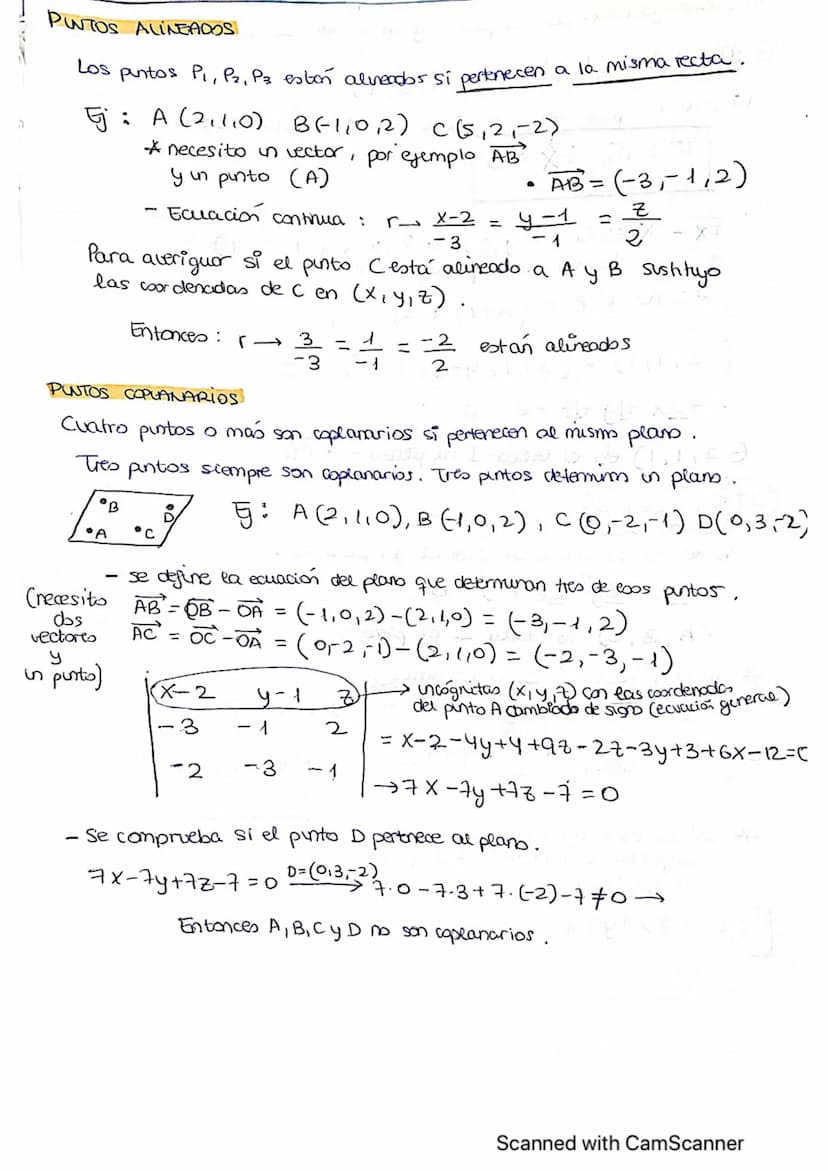 PUNTOS ALINEADOS
Los puntos P₁, P₂, P₃ están alineados si pertenecen a la misma recta.
Ej: A(2,1,0) B(-1,0,2) C(5,2,-2)
* necesito un vector, por ejemplo AB→
y un punto (A)
• AB→ = (-3,-1,2)
- Ecuación continua: r→ (x-2)/-3 = (y-1)/-1 = z/2
Para averiguar si el punto C está alineado a A y B sustituyo
las coordenadas de C en (x,y,z).
Entonces: r → 3/-3 = 1/-1 = -2/2 están alineados
PUNTOS COPLANARIOS
Cuatro puntos o más son coplanarios si pertenecen al mismo plano.
Tres puntos siempre son coplanarios. Tres puntos determinan un plano.
•B D •A •C
Ej: A(2,1,0), B(-1,0,2), C(0,-2,-1) D(0,3,-2)
- se define la ecuación del plano que determinan tres de esos puntos.
(necesito
dos
vectores
y
un punto)
AB→ = OB→ - OA→ = (-1,0,2)-(2,1,0) = (-3,-1,2)
AC→ = OC→ - OA→ = (0,-2,-1)-(2,1,0) = (-2,-3,-1)
| x-2 y-1 z | → incógnitas (x,y,z) con las coordenadas
del punto A cambiado de signo (ecuación general)
| -3 -1 2 |
= x-2-4y+4+9z-2z-3y+3+6x-12=0
| -2 -3 -1 |
→ 7x-7y+7z-7=0
- Se comprueba si el punto D pertnece al plano.
7x-7y+7z-7=0 D=(0,3,-2)→ 7·0-7·3+7·(-2)-7≠0 →
Entonces A,B,C y D no son coplanarios.
Scanned with CamScanner